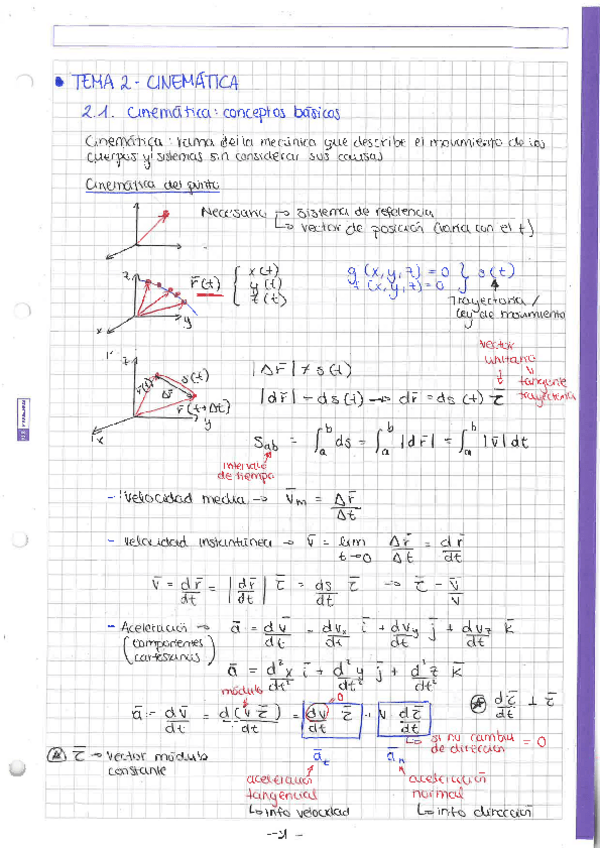 • TEMA 2 - CINEMÁTICA
2.1. Cinemática: conceptos básicos
Cinemática: rama de la mecánica que describe el movimiento de los
cuerpos y sistemas sin considerar sus causas
Cinemática del punto
Necesario → sistema de referencia
↳ vector de posición (varía con el t)
z
r̄(t) { x(t)
y(t)
z(t)
x y
g(x,y,z) = 0 } s(t)
f(x,y,z) = 0
Trayectoria /
Ley de movimiento
z
r̄(t) s(t)
Δr̄
r̄(t+Δt)
x y
|Δr̄| ≠ s(t)
|dr̄| = ds(t) → dr̄ = ds(t) τ̄
vector
unitario
tangente
trayectoria
S_ab = ∫_a^b ds = ∫_a^b |dr̄| = ∫_a^b |v̄| dt
intervalo
de tiempo
- Velocidad media → v̄_m = Δr̄/Δt
- velocidad instantánea → v̄ = lim t→0 Δr̄/Δt = dr̄/dt
v̄ = dr̄/dt = |dr̄/dt| τ̄ = ds/dt τ̄ → τ̄ = v̄/v
- Aceleración → ā = dv̄/dt = dv_x/dt ī + dv_y/dt j̄ + dv_z/dt k̄
(componentes
cartesianas)
ā = d²x/dt² ī + d²y/dt² j̄ + d²z/dt² k̄
módulo =0
ā = dv̄/dt = d(v τ̄)/dt = dv/dt τ̄ + v dτ̄/dt
* dτ̄/dt ⊥ τ̄
↳ si no cambia = 0
de dirección
* τ̄ → vector módulo
constante
ā_t ā_n
aceleración aceleración
tangencial normal
↳ info velocidad ↳ info dirección